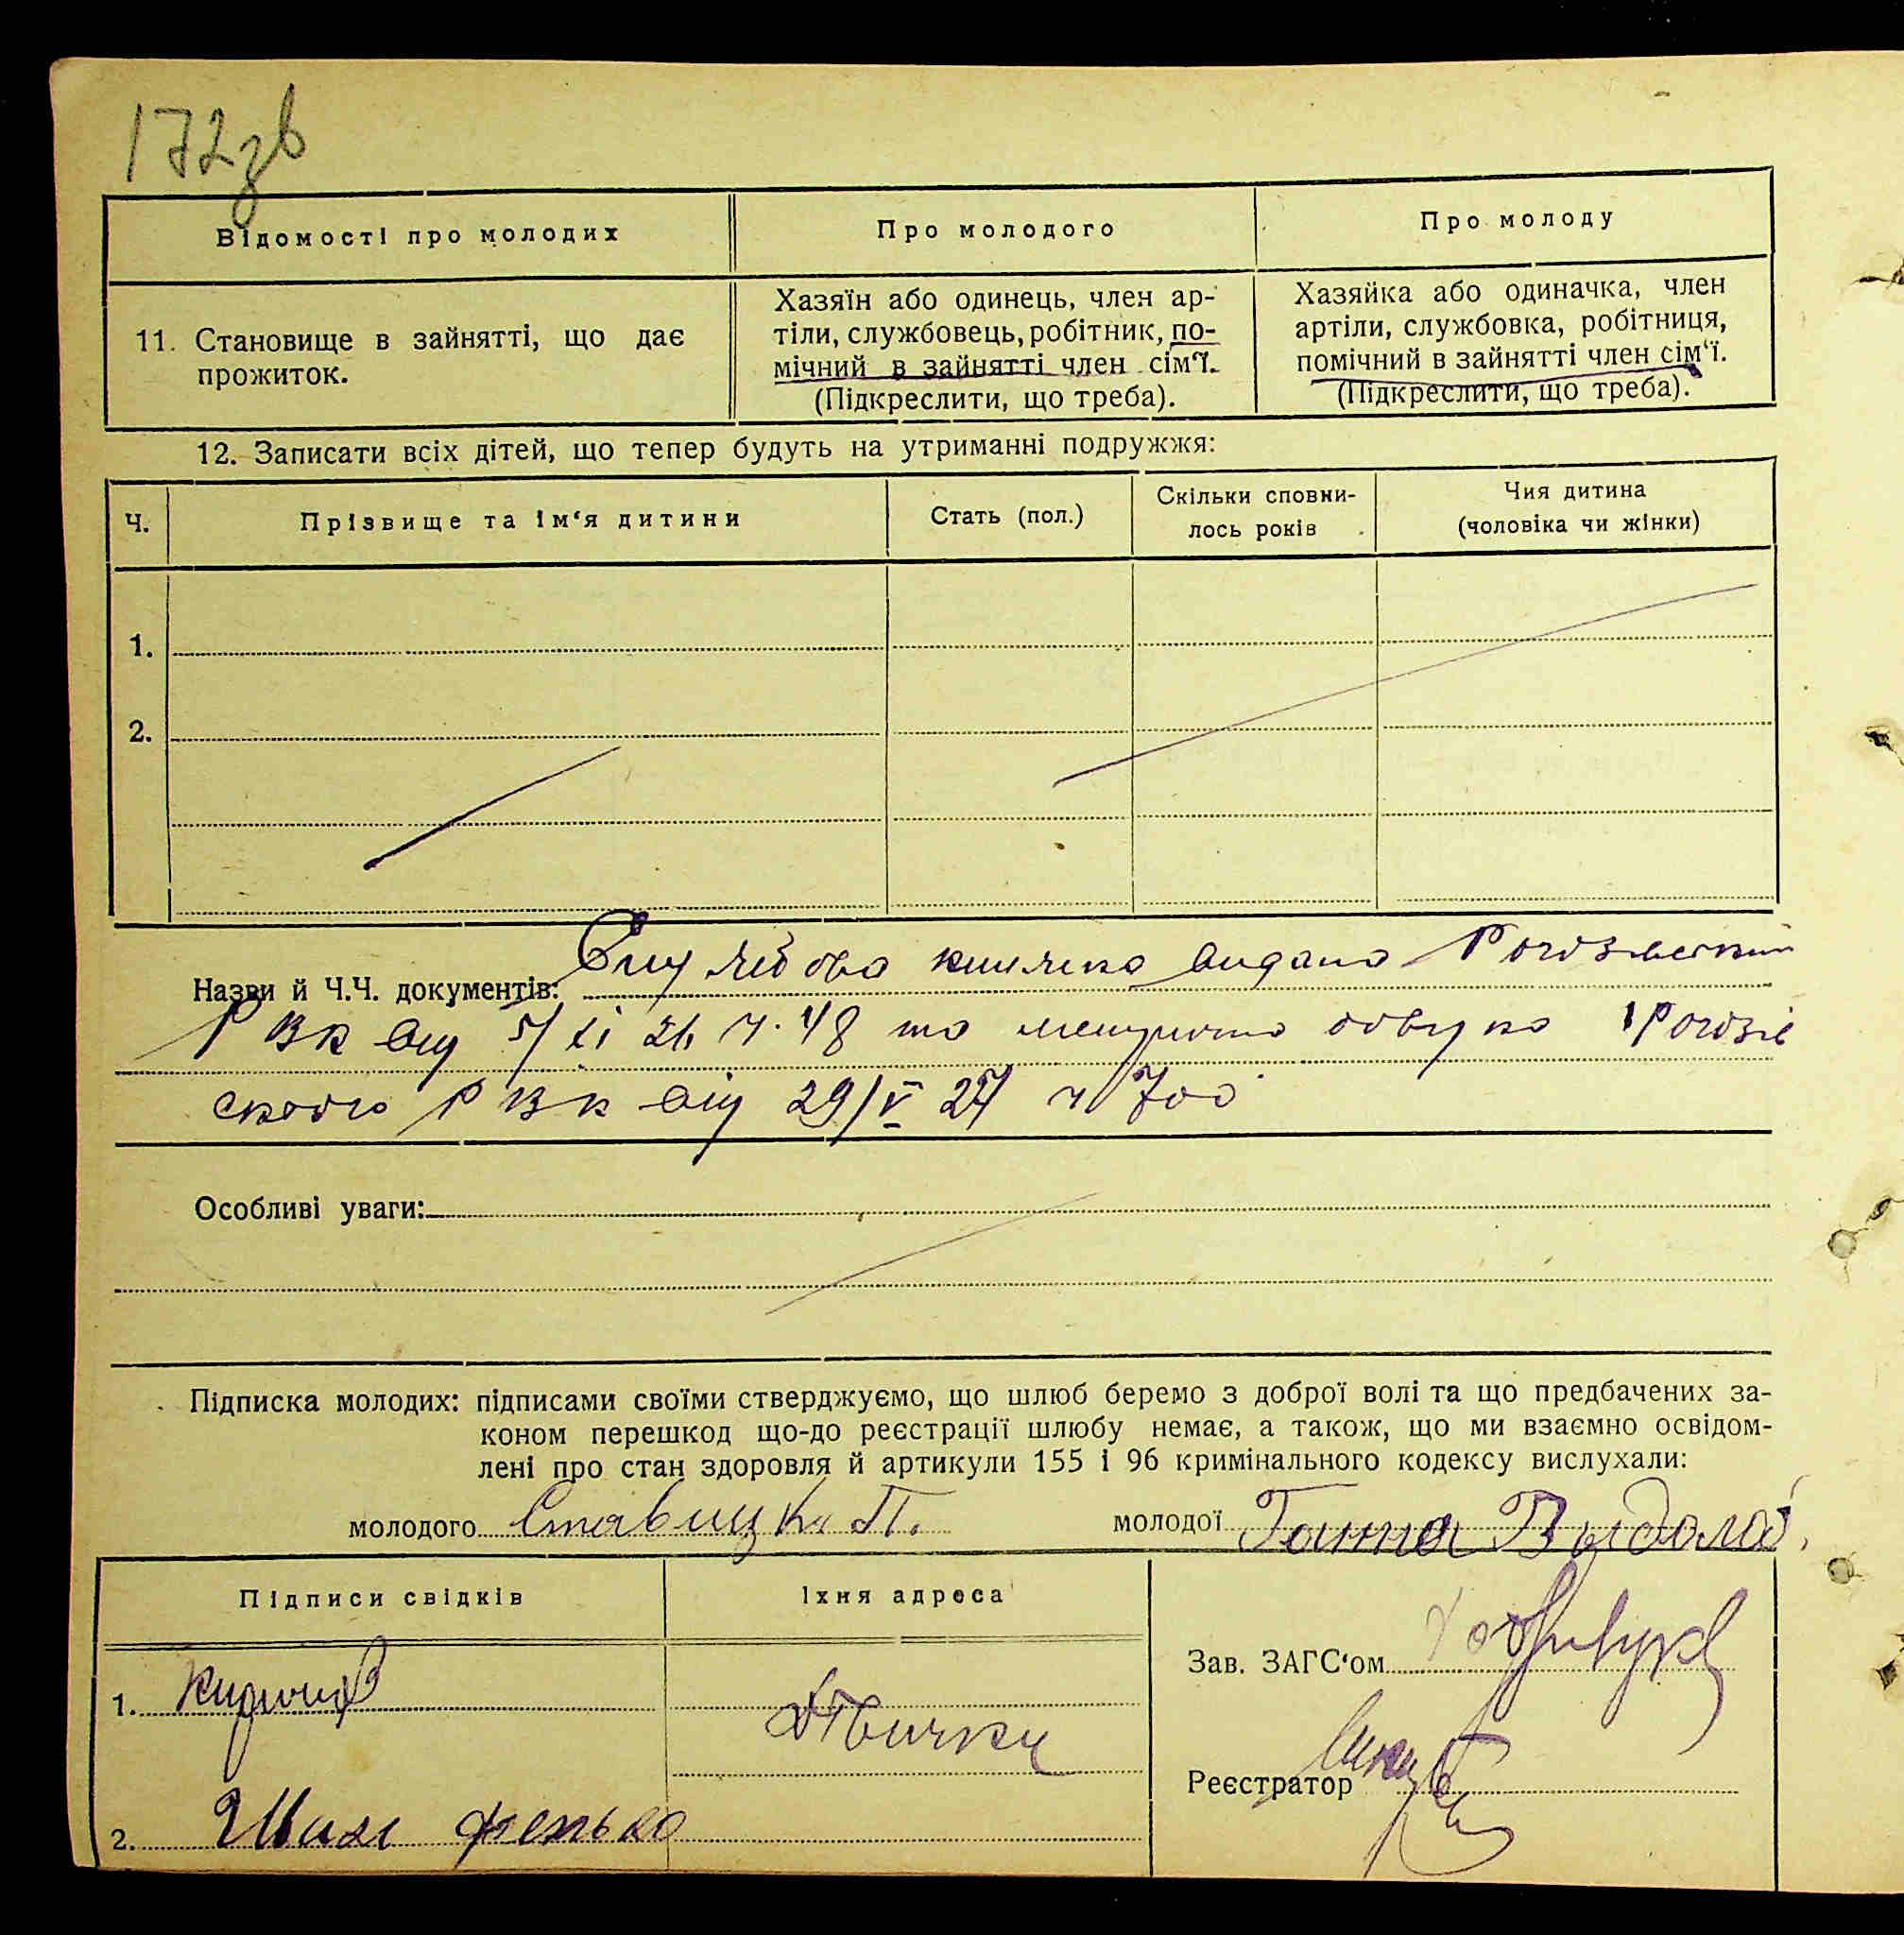 172зв
Відомості про молодих
Про молодого
Про молоду
11. Становище в зайнятті, що дає
прожиток.
Хазяїн або одинець, член ар-
тіли, службовець, робітник, по-
мічний в зайнятті член сім'ї.
(Підкреслити, що треба).
Хазяйка або одиначка, член
артіли, службовка, робітниця,
помічний в зайнятті член сім'ї.
(Підкреслити, що треба).
12. Записати всіх дітей, що тепер будуть на утриманні подружжя:
Ч.
Прізвище та ім'я дитини
Стать (пол.)
Скільки сповни-
лось років
Чия дитина
(чоловіка чи жінки)
1.
2.
Назви й Ч.Ч. документів: книжка видана
РВК від 5/XI 26 ч. 48 та
ского РВК від 29/V 27 ч 700
Особливі уваги:
Підписка молодих: підписами своїми стверджуємо, що шлюб беремо з доброї волі та що предбачених за-
коном перешкод що-до реєстрації шлюбу немає, а також, що ми взаємно освідом-
лені про стан здоровля й артикули 155 і 96 кримінального кодексу вислухали:
молодого П.
молодої Ганна
Підписи свідків
Їхня адреса
1.
2.
Зав. ЗАГС'ом
Реєстратор